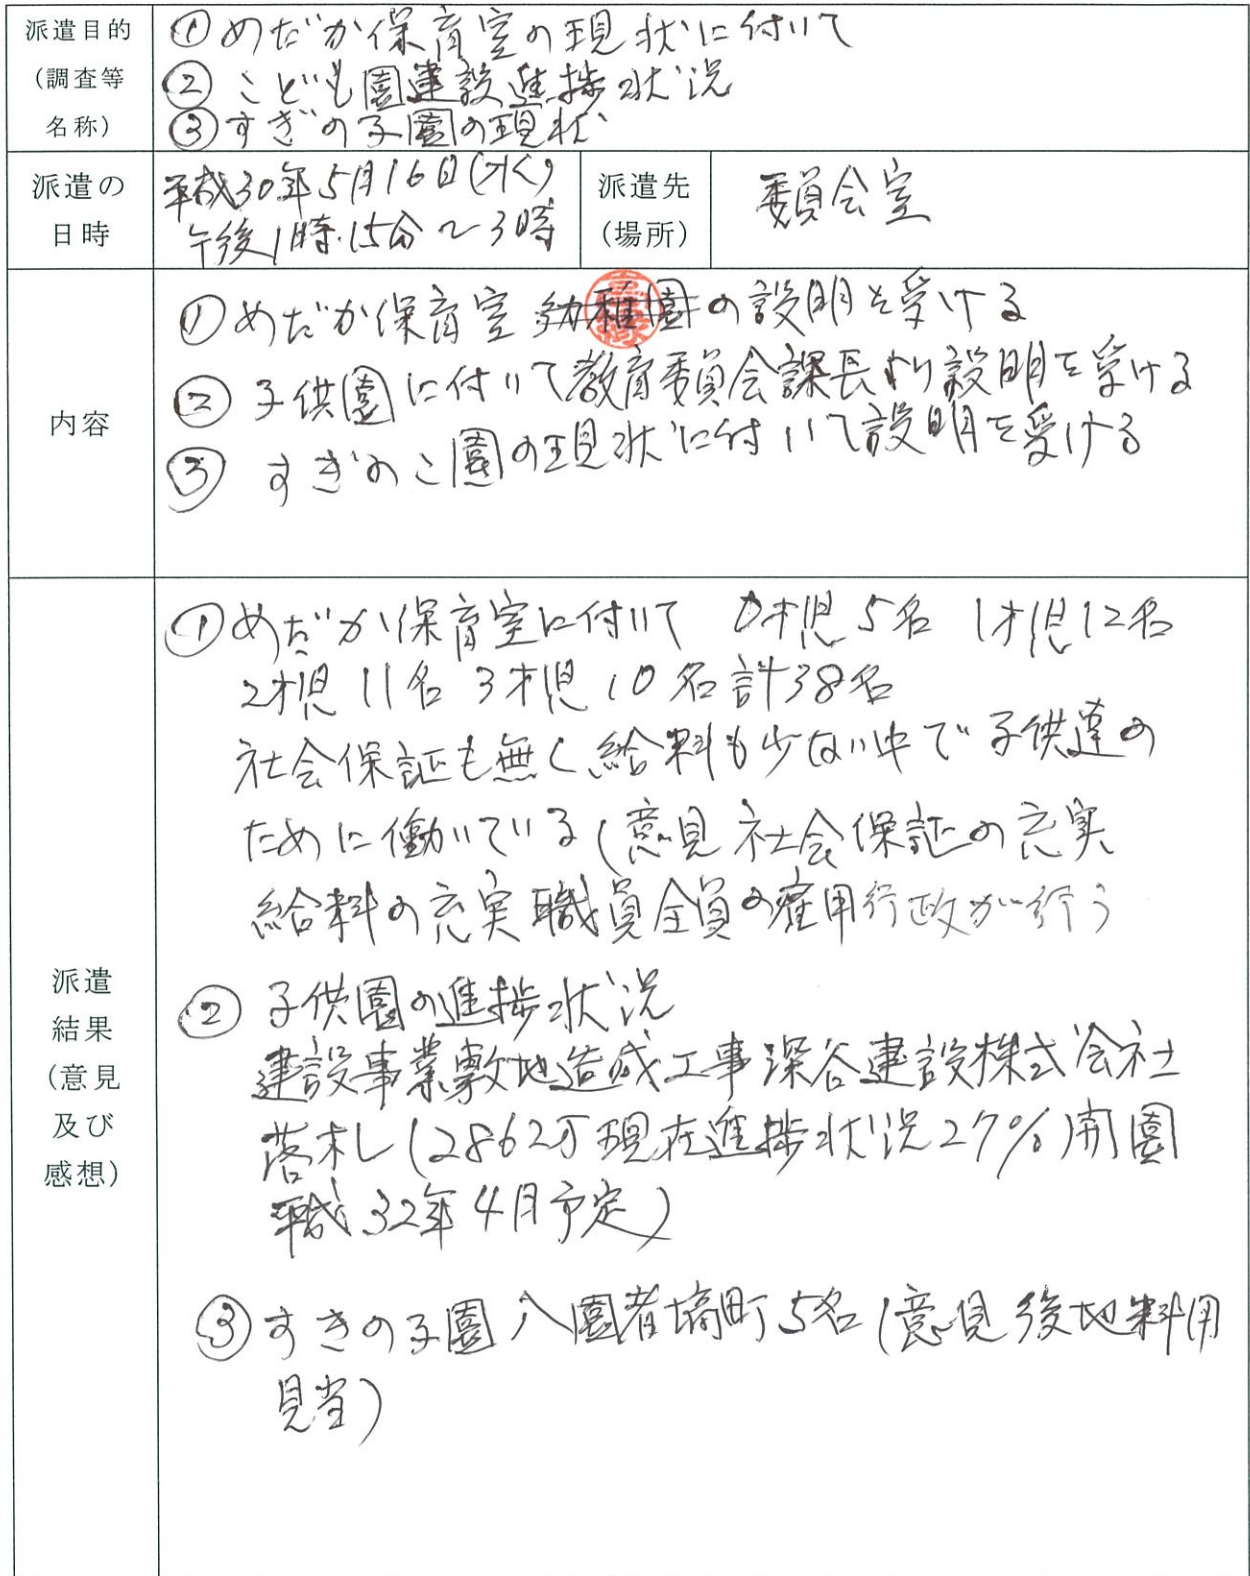 派遣目的
(調査等
名称)
①めだか保育室の現状に付いて
②こども園建設進捗状況
③すぎの子園の現状
派遣の
日時
平成30年5月16日(水)
午後1時15分～3時
派遣先
(場所)
委員会室
内容
①めだか保育室 幼稚園の説明を受ける
②子供園に付いて教育委員会課長より説明を受ける
③すぎのこ園の現状に付いて説明を受ける
派遣
結果
(意見
及び
感想)
①めだか保育室に付いて 0才児5名 1才児12名
2才児11名 3才児10名計38名
社会保証も無く給料も少ない中で子供達の
ために働いている(意見 社会保証の充実
給料の充実 職員全員の雇用行政が行う
②子供園の進捗状況
建設事業敷地造成工事深谷建設株式会社
落札(2862万現在進捗状況27%)開園
平成32年4月予定)
③すきの子園 入園者塙町5名(意見 後地
見当)